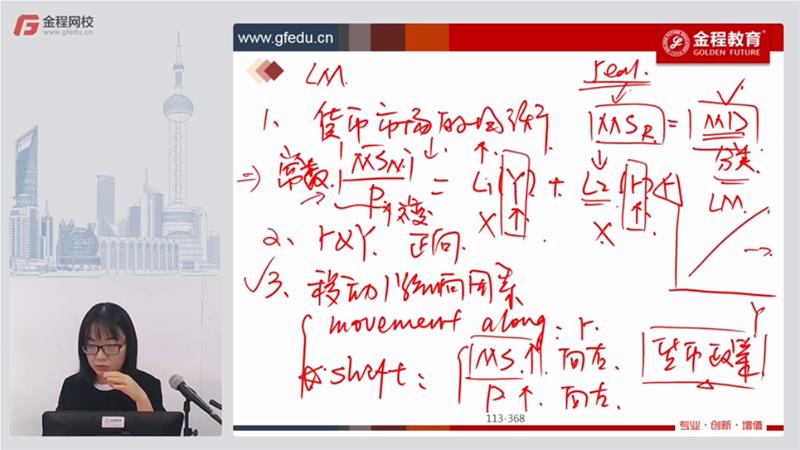 金程网校
www.gfedu.cn
www.gfedu.cn
金程教育
GOLDEN FUTURE
LM.
real.
1、货币市场的均衡
MS_R. = MD
⇒ 常数. MS_N. ↓ / P 不变 = L₁ (Y↑) + L₂ (r↑)
分类
X X
LM
2、r & Y. 正向.
√3、移动/影响因素
Y
movement along: r.
shift: MS.↑ 向右.
货币政策
P↑. 向左.
113-368
专业·创新·增值